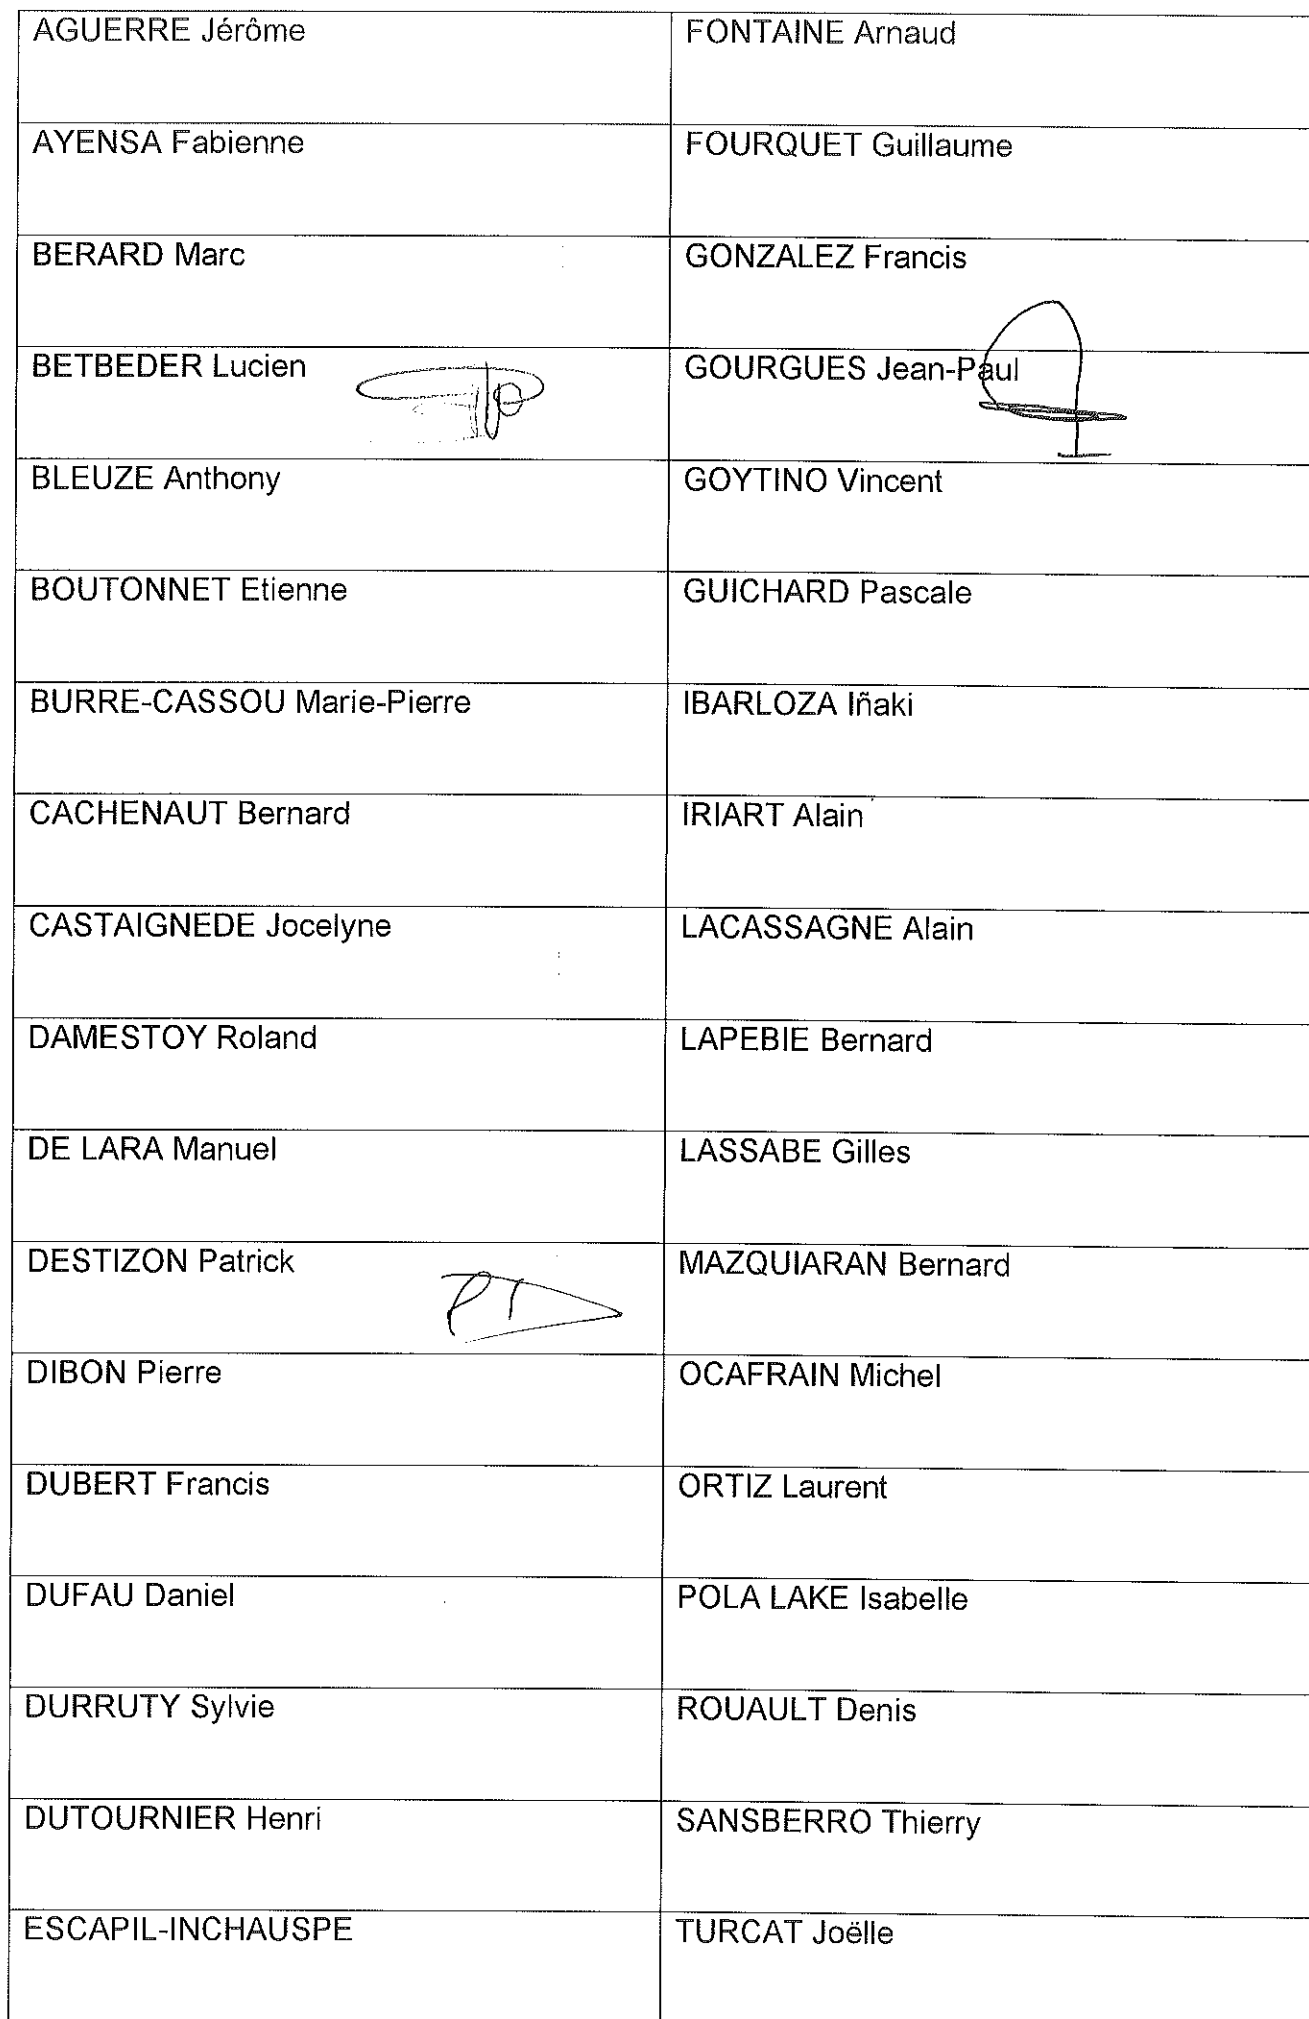 AGUERRE Jérôme
FONTAINE Arnaud
AYENSA Fabienne
FOURQUET Guillaume
BERARD Marc
GONZALEZ Francis
BETBEDER Lucien
GOURGUES Jean-Paul
BLEUZE Anthony
GOYTINO Vincent
BOUTONNET Etienne
GUICHARD Pascale
BURRE-CASSOU Marie-Pierre
IBARLOZA Iñaki
CACHENAUT Bernard
IRIART Alain
CASTAIGNEDE Jocelyne
LACASSAGNE Alain
DAMESTOY Roland
LAPEBIE Bernard
DE LARA Manuel
LASSABE Gilles
DESTIZON Patrick
MAZQUIARAN Bernard
DIBON Pierre
OCAFRAIN Michel
DUBERT Francis
ORTIZ Laurent
DUFAU Daniel
POLA LAKE Isabelle
DURRUTY Sylvie
ROUAULT Denis
DUTOURNIER Henri
SANSBERRO Thierry
ESCAPIL-INCHAUSPE
TURCAT Joëlle